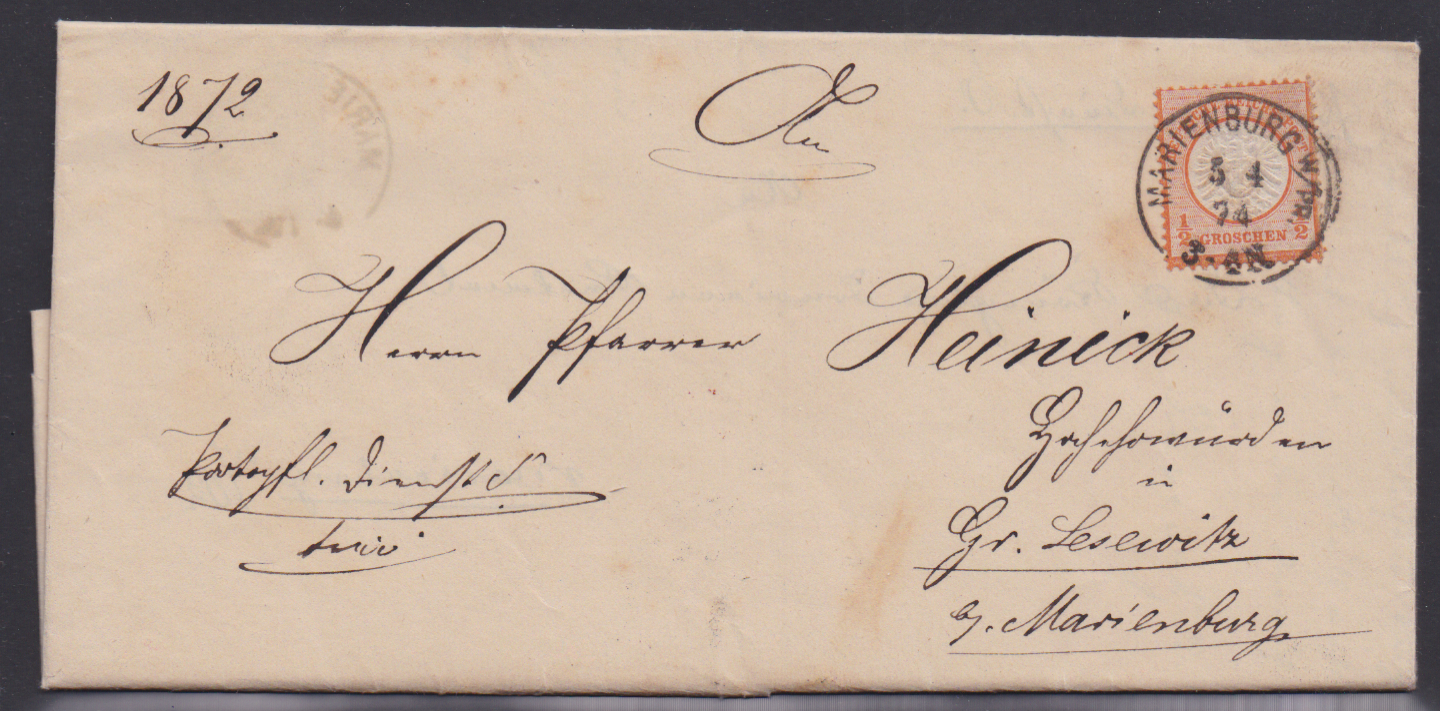 1872
An
MARIENBURG W/PR.
5 4
74
3-4N
1/2 GROSCHEN 1/2
Herrn Pfarrer Heinick
Hochehrwürden
in
Portopfl. Dienst S.
frei
Gr. Lesewitz
b/. Marienburg
MARIE